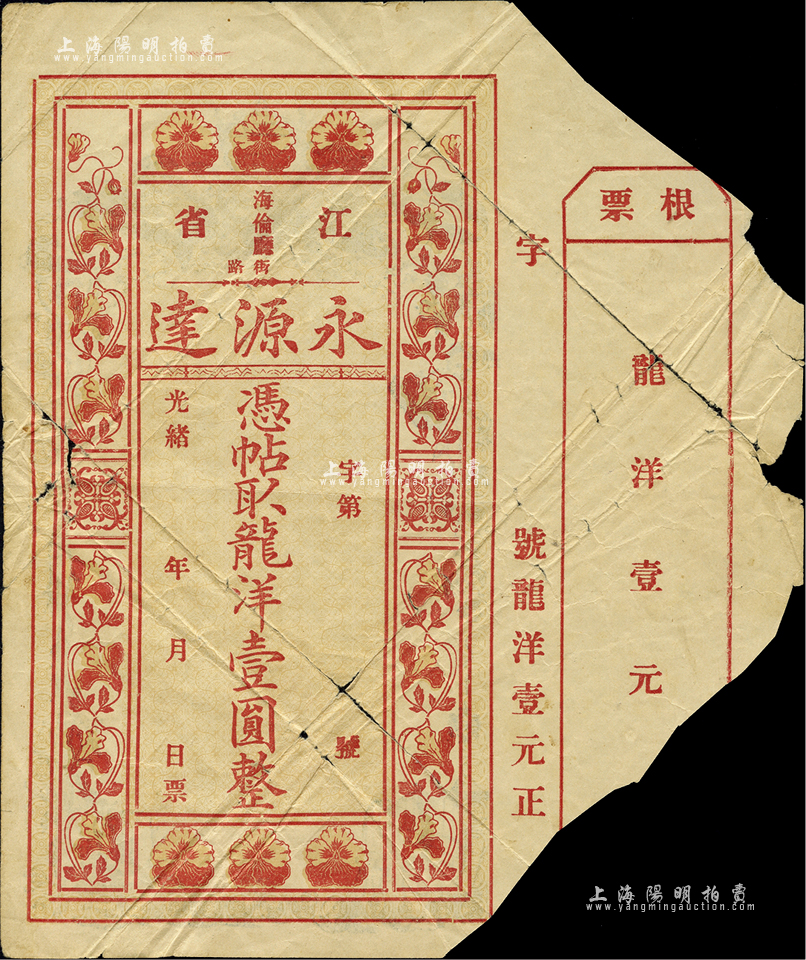 上海陽明拍賣
www.yangmingauction.com
根票
龍洋壹元
字
號龍洋壹元正
江省
海倫廳
街路
永源達
字第
號
憑帖取龍洋壹圓整
光緒
年
月
日票
上海陽明拍賣
www.yangmingauction.com
上海陽明拍賣
www.yangmingauction.com